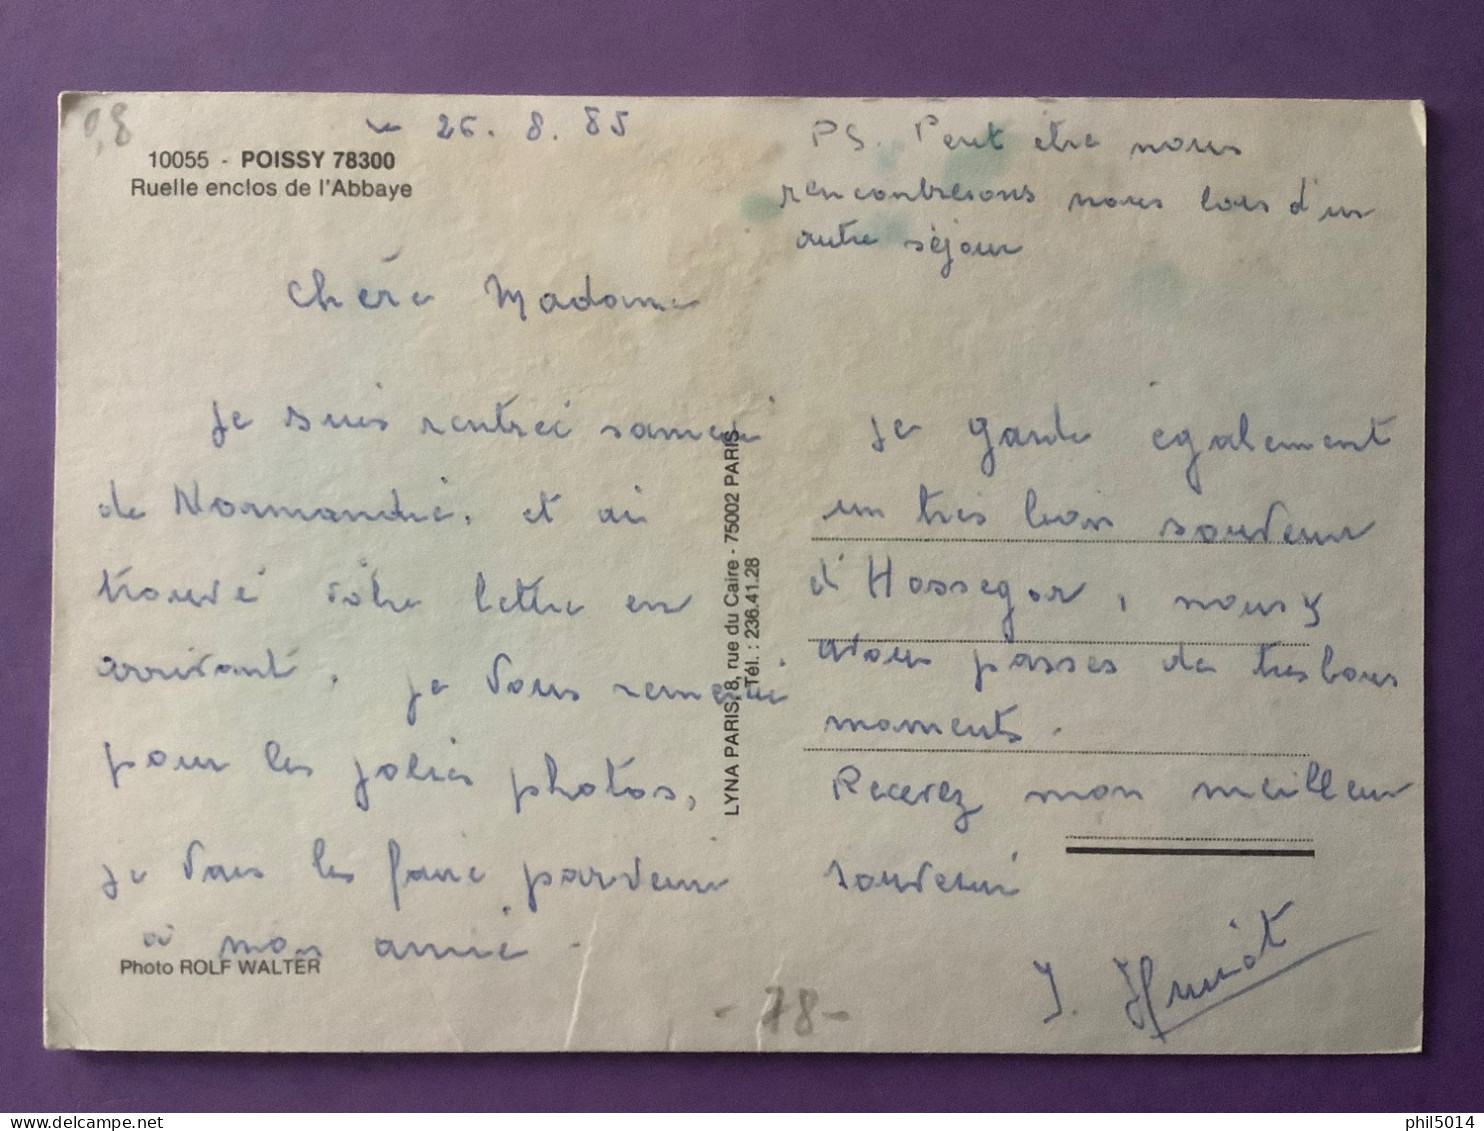 0,8
le 26.8.85
10055 - POISSY 78300
Ruelle enclos de l'Abbaye
Chère Madame
Je suis rentrée samedi
de Normandie, et ai
trouvé vôtre lettre en
arrivant. Je vous remercie
pour les jolies photos,
je vais les faire parvenir
à mon amie.
Photo ROLF WALTER
LYNA PARIS, 8, rue du Caire - 75002 PARIS
Tél. : 236.41.28
PS. Peut être nous
rencontrerons nous lors d'un
autre séjour
Je garde également
un très bon souvenir
d'Hossegor, nous y
avons passés de très bons
moments.
Recevez mon meilleur
souvenir
- 78 -
phil5014